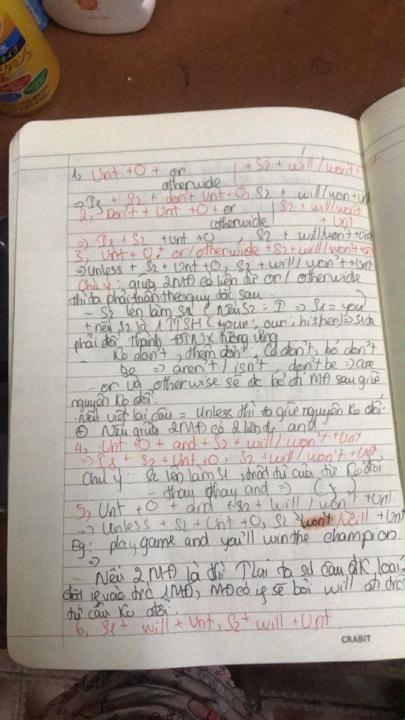 1, Unt + O + or | + S2 + will/won't +
otherwide
=> If + S2 + don't Unt + O, S2 + will/won + Unt
2, Don't + Unt + O + or | S2 + will/won't
otherwide | + Unt
=> If + S2 + Unt + O, S2 + will/won't + Unt
3, Unt + O + or/otherwide + S2 + will/won't
=> Unless + S2 + Unt + O, S2 + will/won't + Unt
Chú ý: giữa 2MĐ có liên từ or/otherwide
thì ta phải tuân theo quy tắc sau
- S2 lên làm S1 (nếu S2 = I => S1 = you)
+ nếu S2 là 1 TTSH (your, our, his, her) =>
phải đổi thành ĐTNX tương ứng
Ko don't, thêm don't. Có don't, bỏ don't
Be => aren't / isn't, don't be => are
- or và otherwise sẽ đc bỏ đi MĐ sau giữ
nguyên ko đổi.
- Nếu viết lại câu = Unless thì ta giữ nguyên ko đổi.
+ Nếu giữa 2MĐ có 2 liên từ and
4, Unt + O + and + S2 + will/won't + Unt
=> If + S2 + Unt + O, S2 + will/won't + Unt
Chú ý: S2 lên làm S1, động từ của đề ko đổi
- thay and => (,)
5, Unt + O + and + S2 + will/won't + Unt
=> Unless + S2 + Unt + O, S2 won't/will + Unt
Eg: play game and you'll win the champion
=>
- Nếu 2MĐ là thì TLai ta sd câu ĐK loại
1 MĐ, MĐ có if sẽ bỏ will
từ câu ko đổi.
6, S1 + will + Unt, S2 + will + Unt
CRABIT